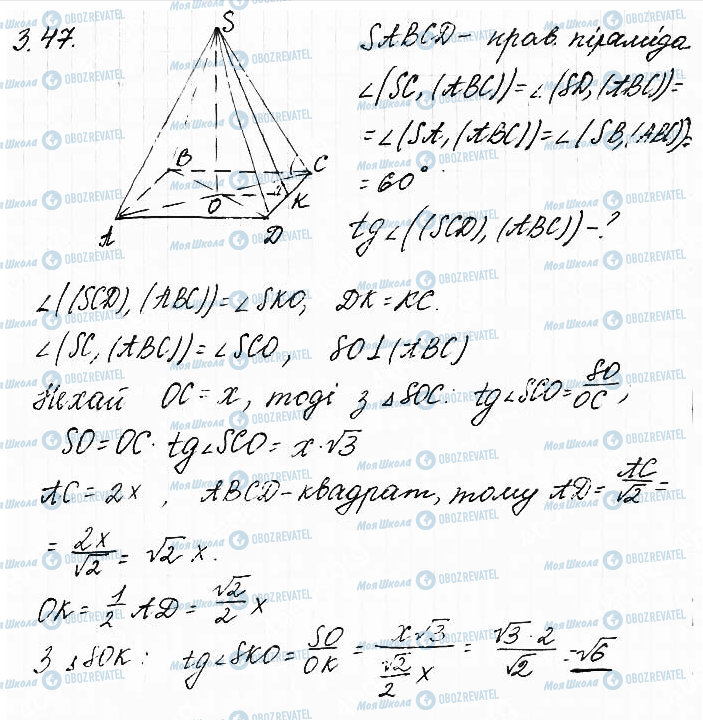 3.47.
S
B
C
O
K
A
D
SABCD – прав. піраміда
∠(SC, (ABC)) = ∠(SD, (ABC)) =
= ∠(SA, (ABC)) = ∠(SB, (ABC)) =
= 60°
tg∠((SCD), (ABC)) – ?
∠((SCD), (ABC)) = ∠SKO; DK = KC.
∠(SC, (ABC)) = ∠SCO, SO⊥(ABC)
Нехай OC = x, тоді з △SOC: tg∠SCO = SO/OC,
SO = OC · tg∠SCO = x·√3
AC = 2x, ABCD – квадрат, тому AD = AC/√2 =
= 2x/√2 = √2 x.
OK = 1/2 AD = √2/2 x
З △SOK: tg∠SKO = SO/OK = x√3/(√2/2 x) = √3·2/√2 = √6
Моя Школа OBOZREVATEL